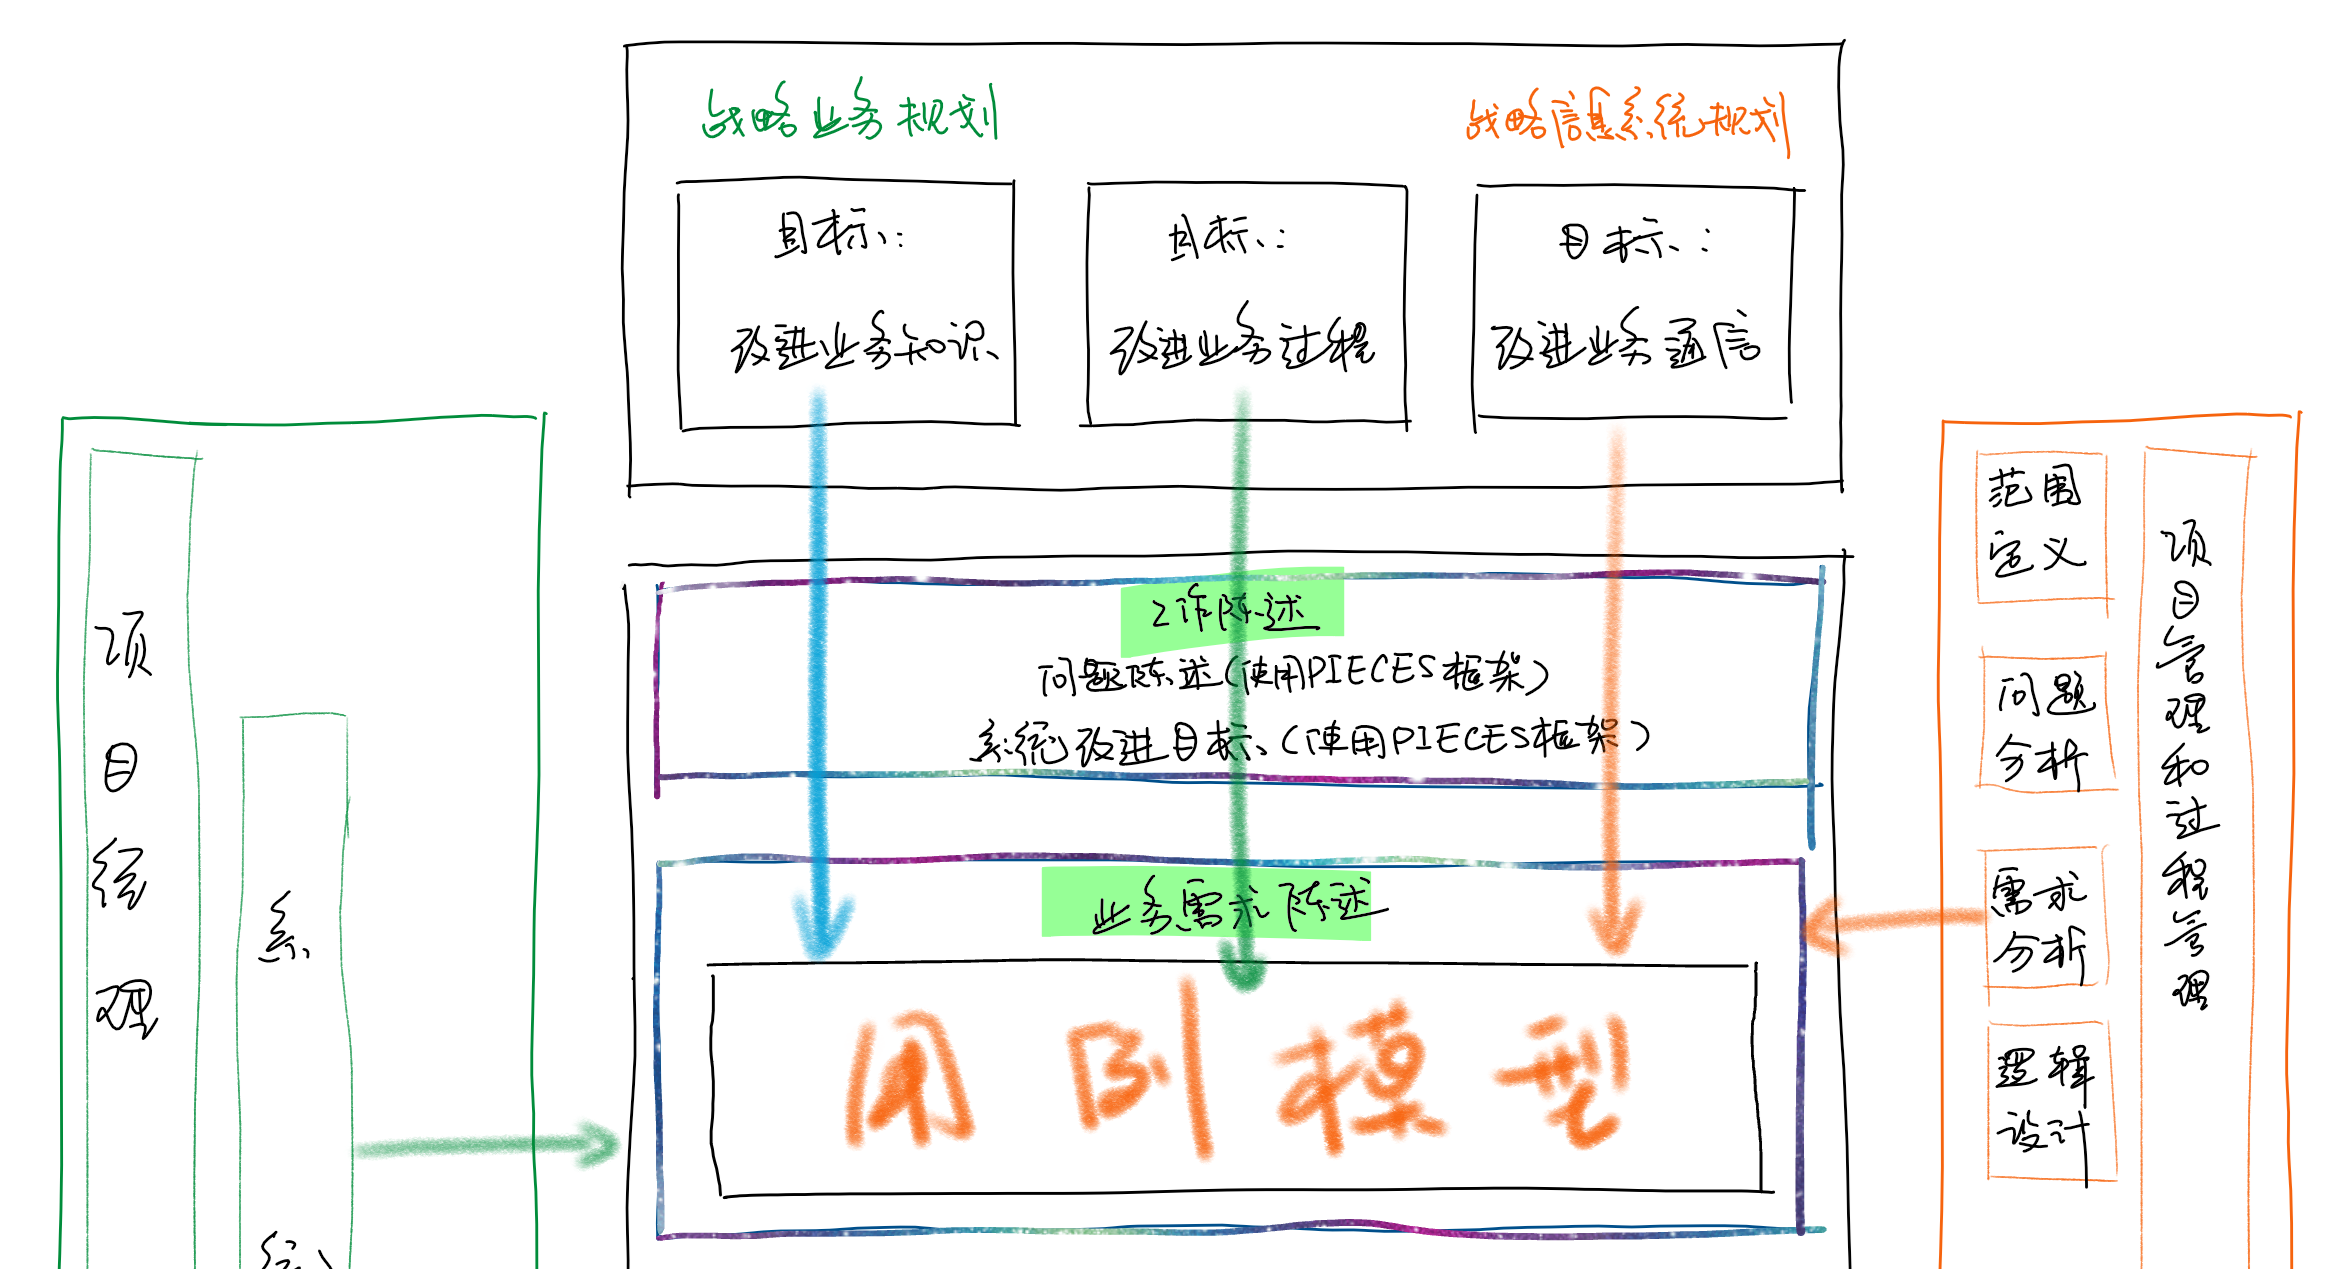 战略业务规划
战略信息系统规划
目标:
改进业务知识
目标:
改进业务过程
目标:
改进业务通信
工作陈述
问题陈述(使用PIECES框架)
系统改进目标(使用PIECES框架)
业务需求陈述
用例模型
项目经理
系统
范围
定义
问题
分析
需求
分析
逻辑
设计
项目管理和过程管理